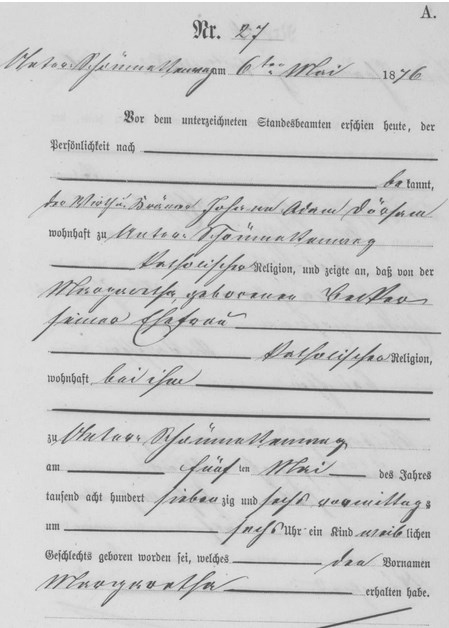 A.
Nr. 27
Unter-Schönmattenwag am 6ten Mai 1876
Vor dem unterzeichneten Standesbeamten erschien heute, der
Persönlichkeit nach
bekannt,
der Wirth u. Bräuer Johann Adam Dörsam
wohnhaft zu Unter-Schönmattenwag
katholischer Religion, und zeigte an, daß von der
Margaretha, geborenen Becker
seiner Ehefrau
katholischer Religion,
wohnhaft bei ihm
zu Unter-Schönmattenwag
am fünf ten Mai des Jahres
tausend acht hundert siebenzig und sechs vormittags
um sechs Uhr ein Kind weiblichen
Geschlechts geboren worden sei, welches den Vornamen
Margaretha erhalten habe.